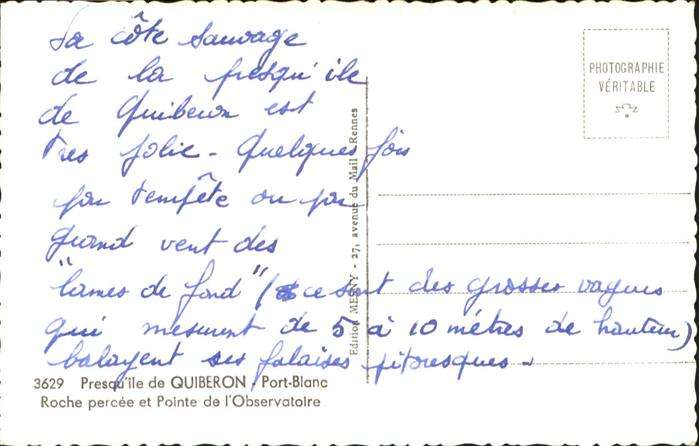 La côte sauvage
de la presqu'ile
de Quiberon est
très jolie - Quelques fois
par tempête ou par
grand vent des
"lames de fond" (ce sont des grosses vagues
qui mesurent de 5 à 10 mètres de hauteur)
balayent ses falaises pitoresques -
3629 Presqu'ile de QUIBERON - Port-Blanc
Roche percée et Pointe de l'Observatoire
Edition MESNY - 27, avenue du Mail - Rennes
PHOTOGRAPHIE
VÉRITABLE